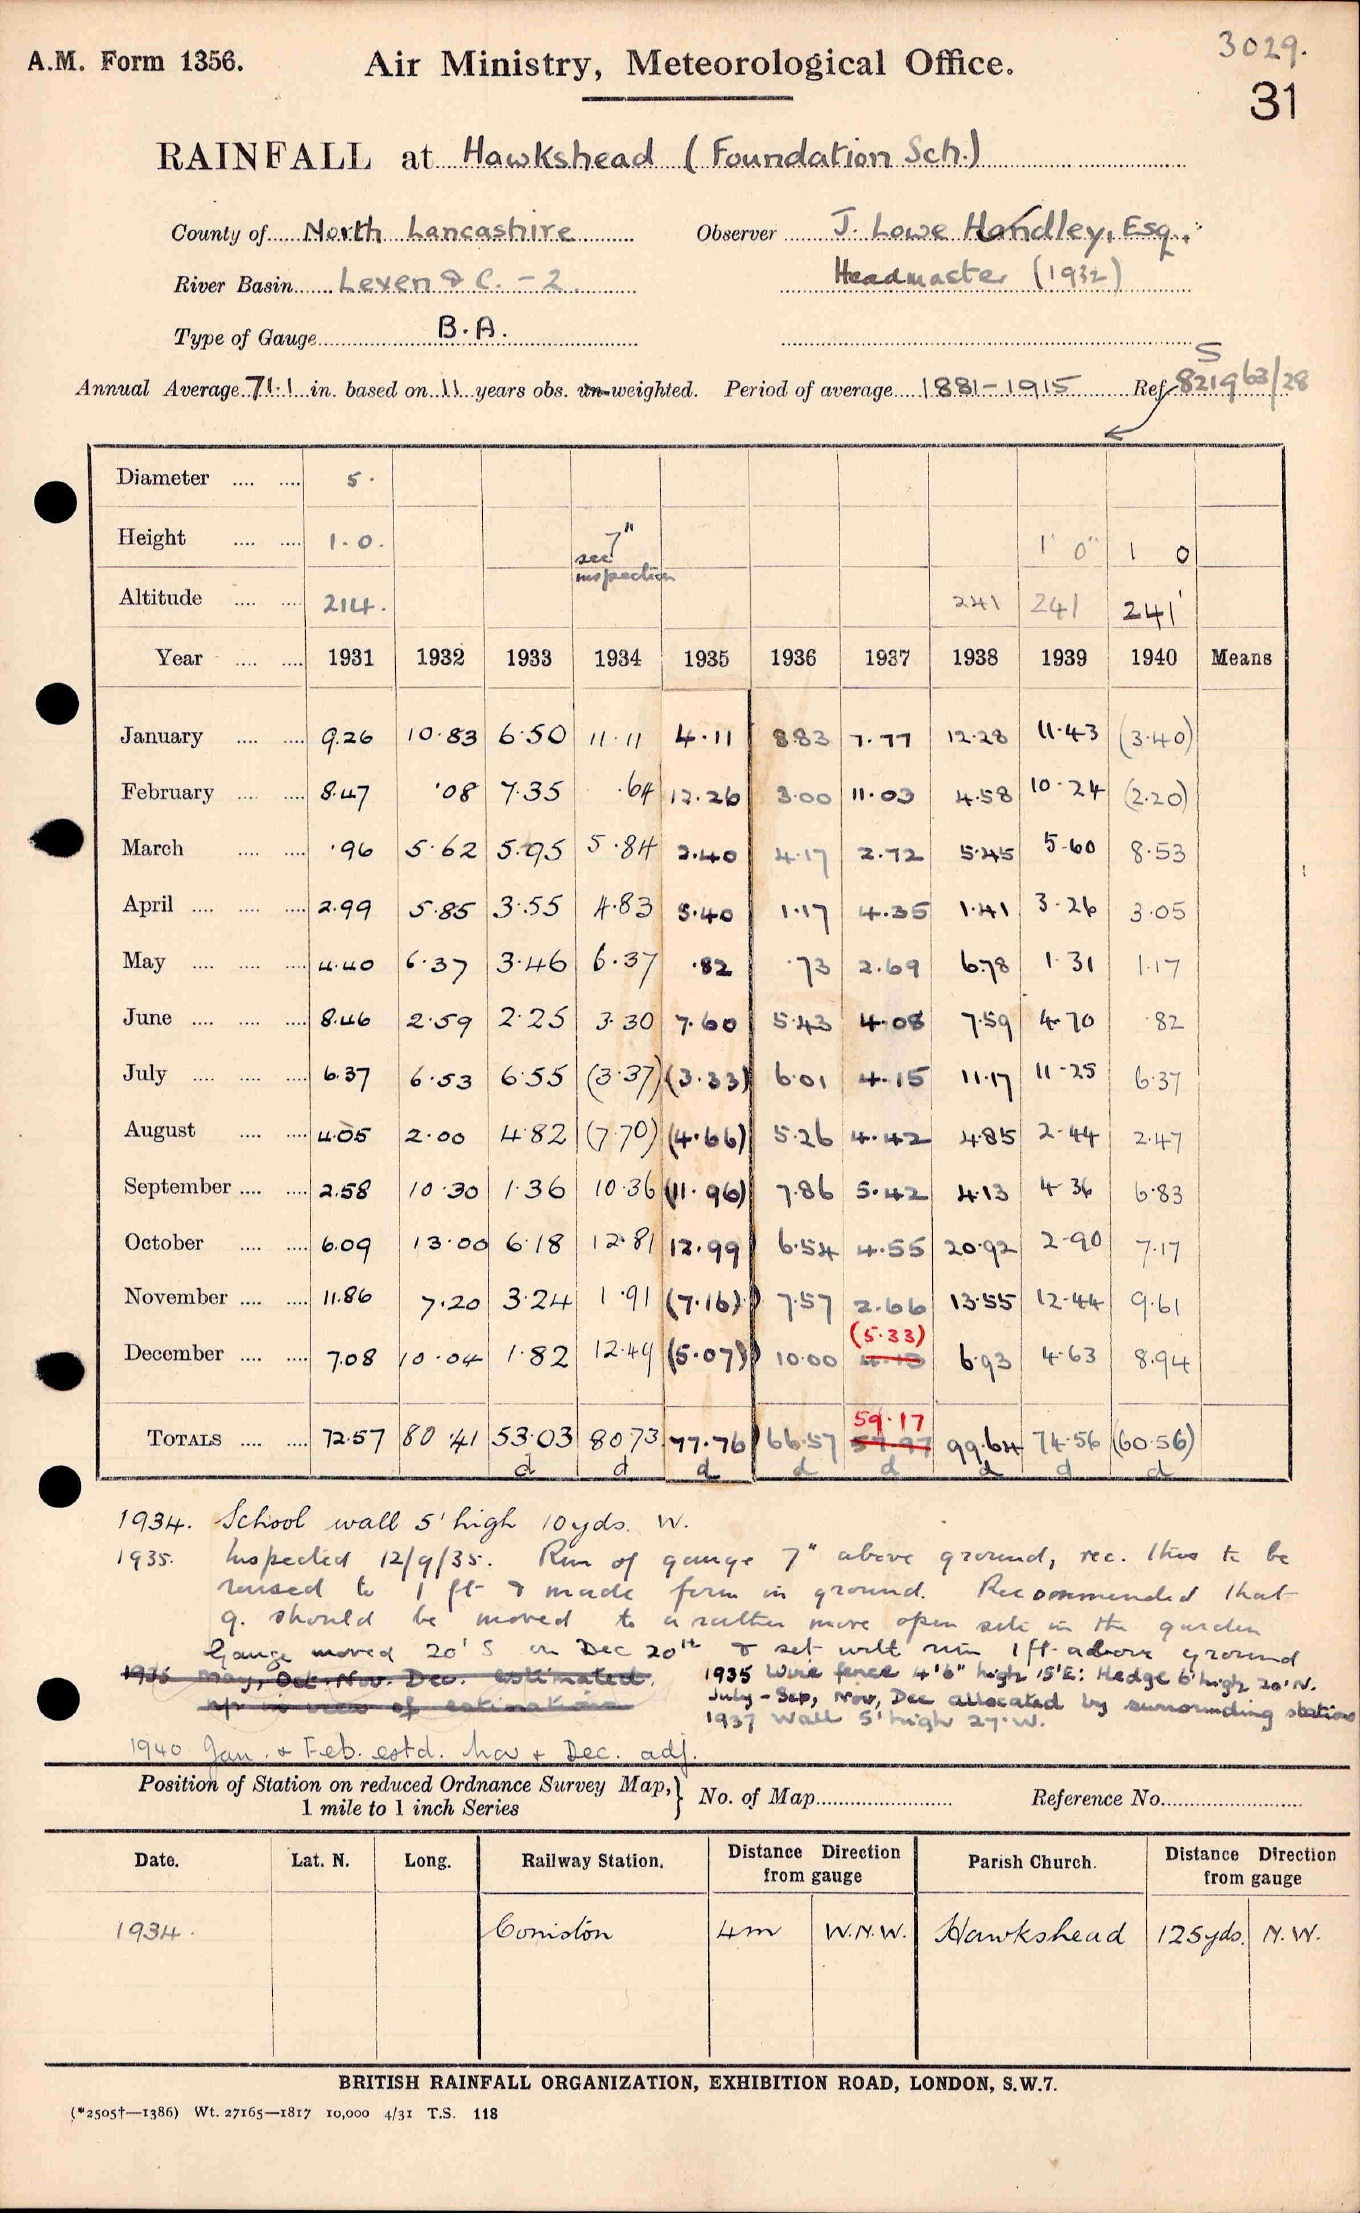 3029.
A.M. Form 1356. Air Ministry, Meteorological Office.
31
RAINFALL at Hawkshead (Foundation Sch.)
County of North Lancashire Observer J. Lowe Handley, Esq.,
River Basin Leven & C. - 2. Headmaster (1932)
Type of Gauge B.A.
Annual Average 71.1 in. based on 11 years obs. un-weighted. Period of average 1881-1915 Ref S 8219 63/28
Diameter .... .... 5.
Height .... .... 1.0. 7" see inspection 1' 0" 1 0
Altitude .... .... 214. 241 241 241'
Year .... .... 1931 1932 1933 1934 1935 1936 1937 1938 1939 1940 Means
January .... .... 9.26 10.83 6.50 11.11 4.11 8.83 7.77 12.28 11.43 (3.40)
February .... .... 8.47 .08 7.35 .64 12.26 3.00 11.03 4.58 10.24 (2.20)
March .... .... .96 5.62 5.95 5.84 2.40 4.17 2.72 5.45 5.60 8.53
April .... .... .... 2.99 5.85 3.55 4.83 5.40 1.17 4.35 1.41 3.26 3.05
May .... .... .... 4.40 6.37 3.46 6.37 .82 .73 2.69 6.78 1.31 1.17
June .... .... .... 8.46 2.59 2.25 3.30 7.60 5.43 4.08 7.59 4.70 .82
July .... .... .... 6.37 6.53 6.55 (3.37) (3.33) 6.01 4.15 11.17 11.25 6.37
August .... .... 4.05 2.00 4.82 (7.70) (4.66) 5.26 4.42 4.85 2.44 2.47
September .... .... 2.58 10.30 1.36 10.36 (11.96) 7.86 5.42 4.13 4.36 6.83
October .... .... 6.09 13.00 6.18 12.81 12.99 6.54 4.55 20.92 2.90 7.17
November .... .... 11.86 7.20 3.24 1.91 (7.16) 7.57 2.66 13.55 12.44 9.61
(5.33)
December .... .... 7.08 10.04 1.82 12.49 (5.07) 10.00 4.13 6.93 4.63 8.94
59.17
TOTALS .... .... 72.57 80.41 53.03 80.73 77.76 66.57 57.97 99.64 74.56 (60.56)
d d d d d d d d
1934. School wall 5' high 10yds. W.
1935. Inspected 12/9/35. Rim of gauge 7" above ground, rec. this to be
raised to 1 ft & made firm in ground. Recommended that
g. should be moved to a rather more open site in the garden
Gauge moved 20' S on Dec 20th & set with rim 1ft above ground
1936 May, Oct. Nov. Dec. estimated. 1935 Wire fence 4'6" high 15' E: Hedge 6' high 20' N.
n/p in view of estimations July - Sep, Nov, Dec allocated by surrounding stations
1937 Wall 5' high 27' W.
1940 Jan. & Feb. estd. Nov & Dec. adj.
Position of Station on reduced Ordnance Survey Map, 1 mile to 1 inch Series } No. of Map Reference No.
Date. Lat. N. Long. Railway Station. Distance Direction from gauge Parish Church. Distance Direction from gauge
1934. Coniston 4m W.N.W. Hawkshead 125yds. N.W.
BRITISH RAINFALL ORGANIZATION, EXHIBITION ROAD, LONDON, S.W.7.
(*2505†—1386) Wt. 27165—1817 10,000 4/31 T.S. 118